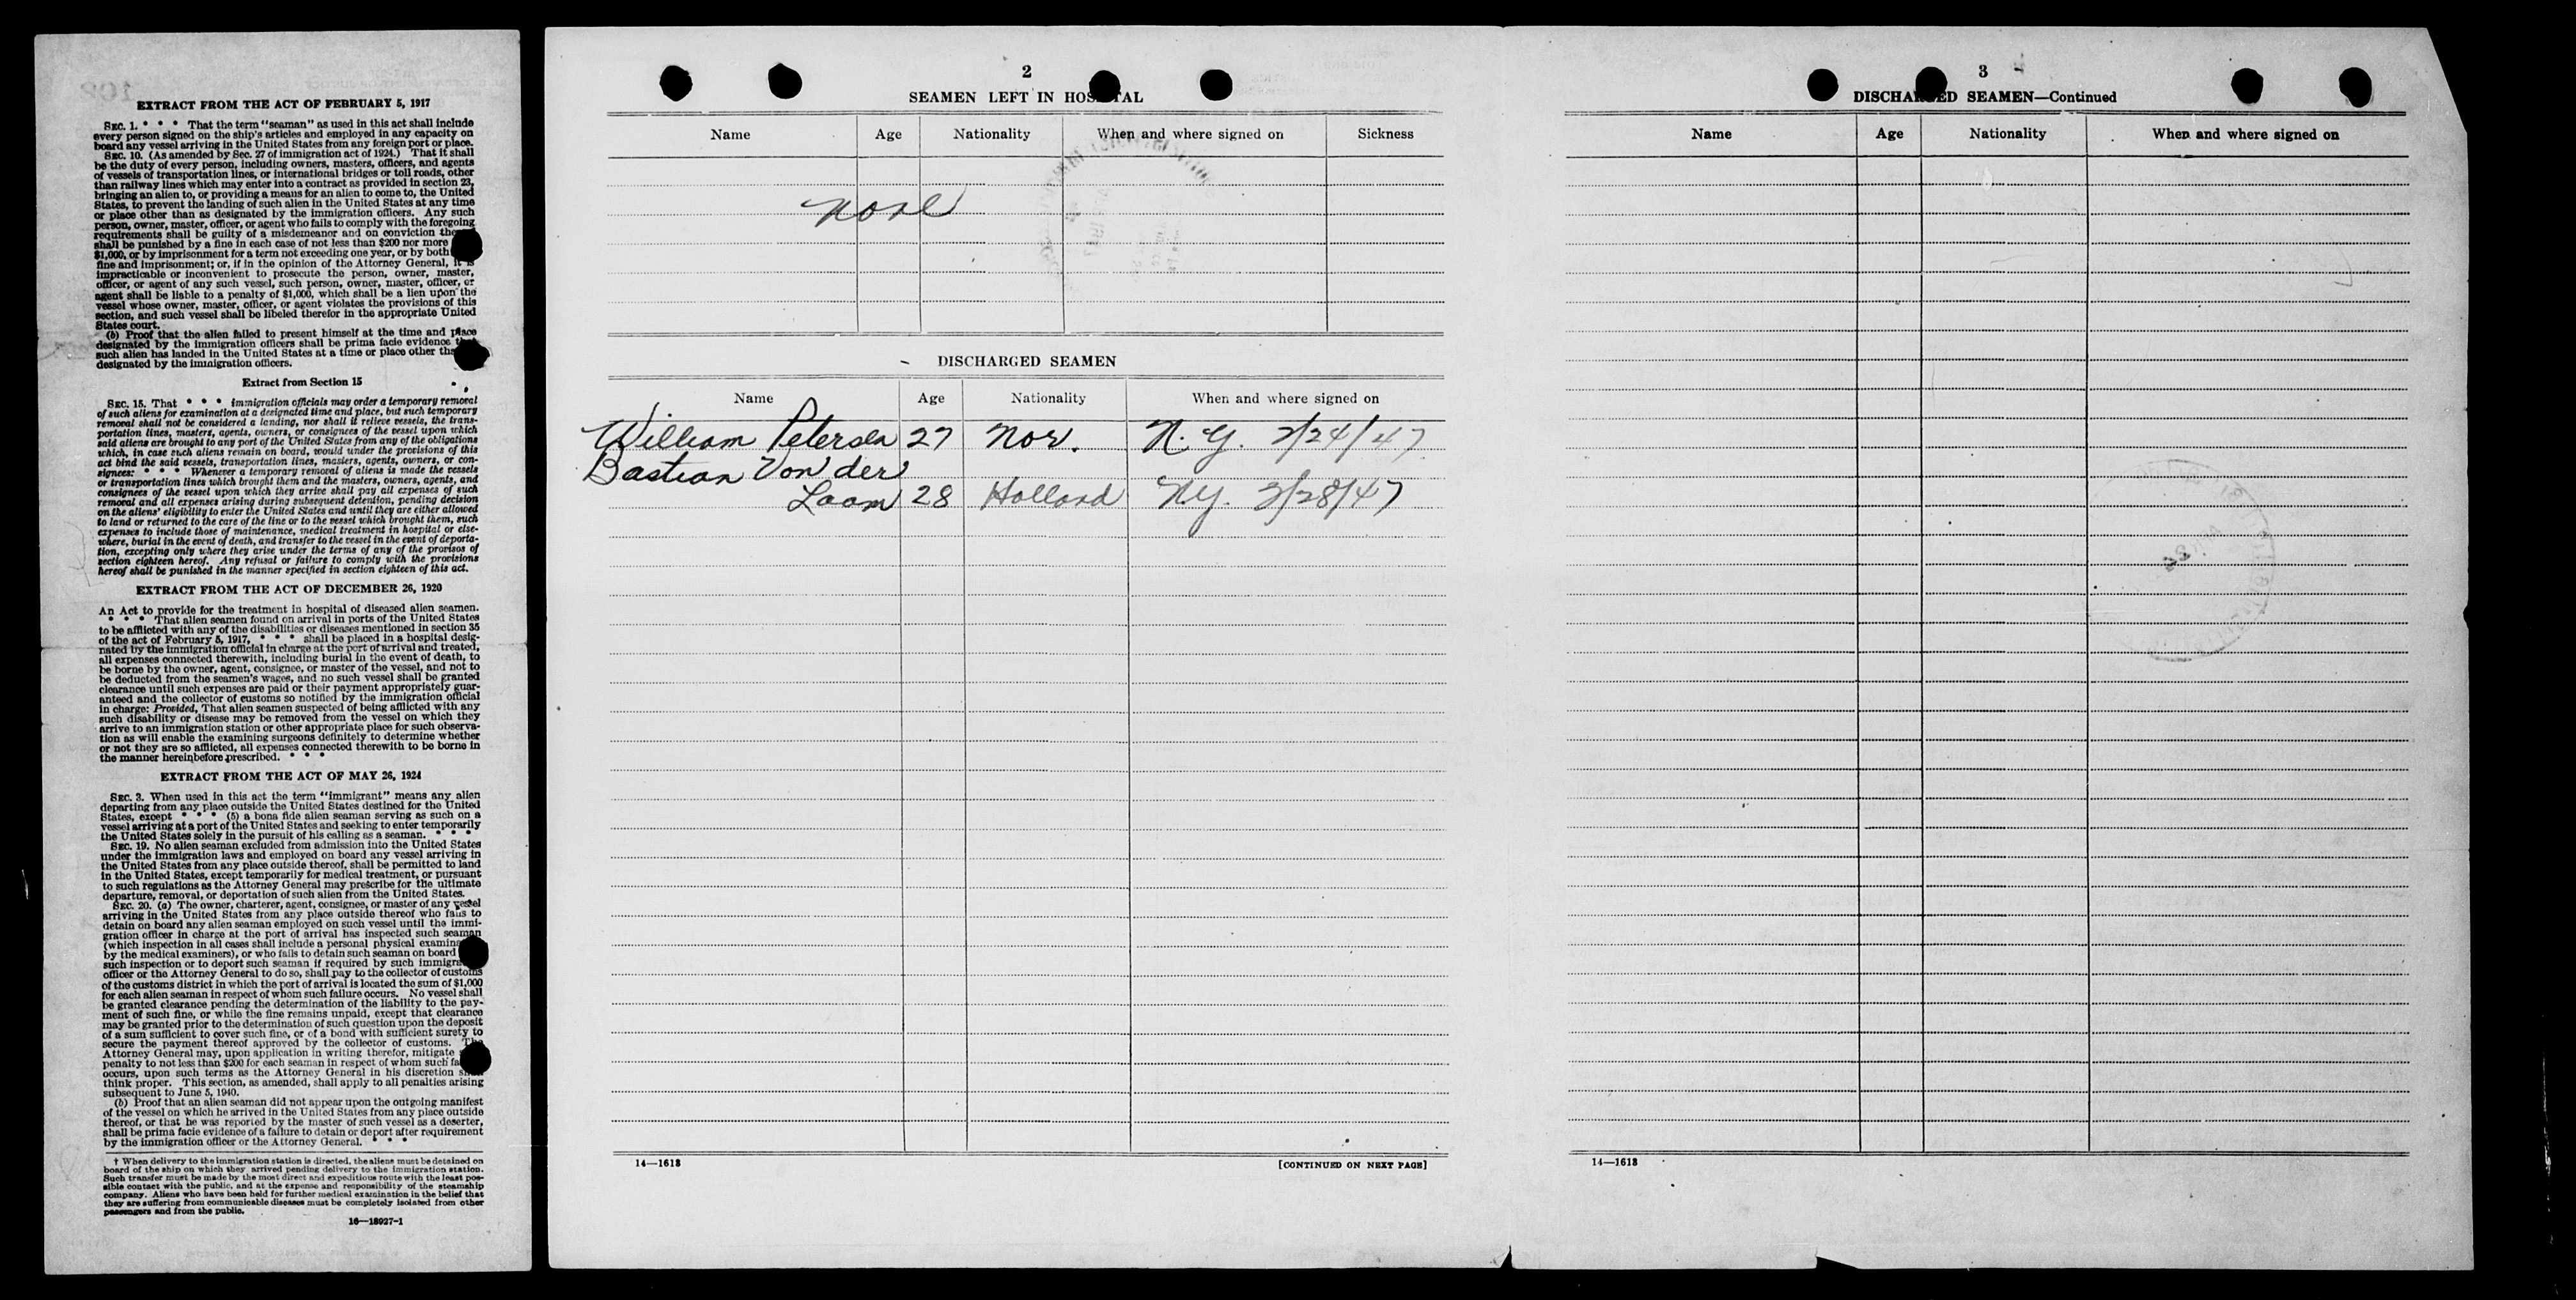 EXTRACT FROM THE ACT OF FEBRUARY 5, 1917
SEC. 1. * * * That the term "seaman" as used in this act shall include
every person signed on the ship's articles and employed in any capacity on
board any vessel arriving in the United States from any foreign port or place.
SEC. 10. (As amended by Sec. 27 of immigration act of 1924.) That it shall
be the duty of every person, including owners, masters, officers, and agents
of vessels of transportation lines, or international bridges or toll roads, other
than railway lines which may enter into a contract as provided in section 23,
bringing an alien to, or providing a means for an alien to come to, the United
States, to prevent the landing of such alien in the United States at any time
or place other than as designated by the immigration officers. Any such
person, owner, master, officer, or agent who fails to comply with the foregoing
requirements shall be guilty of a misdemeanor and on conviction
shall be punished by a fine in each case of not less than $200 nor more
$1,000, or by imprisonment for a term not exceeding one year, or by both
fine and imprisonment; or, if in the opinion of the Attorney General, it is
impracticable or inconvenient to prosecute the person, owner, master,
officer, or agent of any such vessel, such person, owner, master, officer, or
agent shall be liable to a penalty of $1,000, which shall be a lien upon the
vessel whose owner, master, officer, or agent violates the provisions of this
section, and such vessel shall be libeled therefor in the appropriate United
States court.
(b) Proof that the alien failed to present himself at the time and place
designated by the immigration officers shall be prima facie evidence
such alien has landed in the United States at a time or place other
designated by the immigration officers.
Extract from Section 15
SEC. 15. That * * * immigration officials may order a temporary removal
of such aliens for examination at a designated time and place, but such temporary
removal shall not be considered a landing, nor shall it relieve vessels, the trans-
portation lines, masters, agents, owners, or consignees of the vessel upon which
said aliens are brought to any port of the United States from any of the obligations
which, in case such aliens remain on board, would under the provisions of this
act bind the said vessels, transportation lines, masters, agents, owners, or con-
signees: * * * Whenever a temporary removal of aliens is made the vessels
or transportation lines which brought them and the masters, owners, agents, and
consignees of the vessel upon which they arrive shall pay all expenses of such
removal and all expenses arising during subsequent detention, pending decision
on the aliens' eligibility to enter the United States and until they are either allowed
to land or returned to the care of the line or to the vessel which brought them, such
expenses to include those of maintenance, medical treatment in hospital or else-
where, burial in the event of death, and transfer to the vessel in the event of deporta-
tion, excepting only where they arise under the terms of any of the provisos of
section eighteen hereof. Any refusal or failure to comply with the provisions
hereof shall be punished in the manner specified in section eighteen of this act.
EXTRACT FROM THE ACT OF DECEMBER 26, 1920
An Act to provide for the treatment in hospital of diseased alien seamen.
* * * That alien seamen found on arrival in ports of the United States
to be afflicted with any of the disabilities or diseases mentioned in section 35
of the act of February 5, 1917, * * * shall be placed in a hospital desig-
nated by the immigration official in charge at the port of arrival and treated,
all expenses connected therewith, including burial in the event of death, to
be borne by the owner, agent, consignee, or master of the vessel, and not to
be deducted from the seamen's wages, and no such vessel shall be granted
clearance until such expenses are paid or their payment appropriately guar-
anteed and the collector of customs so notified by the immigration official
in charge: Provided, That alien seamen suspected of being afflicted with any
such disability or disease may be removed from the vessel on which they
arrive to an immigration station or other appropriate place for such observa-
tion as will enable the examining surgeons definitely to determine whether
or not they are so afflicted, all expenses connected therewith to be borne in
the manner hereinbefore prescribed. * * *
EXTRACT FROM THE ACT OF MAY 26, 1924
SEC. 3. When used in this act the term "immigrant" means any alien
departing from any place outside the United States destined for the United
States, except * * * (5) a bona fide alien seaman serving as such on a
vessel arriving at a port of the United States and seeking to enter temporarily
the United States solely in the pursuit of his calling as a seaman. * * *
SEC. 19. No alien seaman excluded from admission into the United States
under the immigration laws and employed on board any vessel arriving in
the United States from any place outside thereof, shall be permitted to land
in the United States, except temporarily for medical treatment, or pursuant
to such regulations as the Attorney General may prescribe for the ultimate
departure, removal, or deportation of such alien from the United States.
SEC. 20. (a) The owner, charterer, agent, consignee, or master of any vessel
arriving in the United States from any place outside thereof who fails to
detain on board any alien seaman employed on such vessel until the immi-
gration officer in charge at the port of arrival has inspected such seaman
(which inspection in all cases shall include a personal physical
by the medical examiners), or who fails to detain such seaman on board
such inspection or to deport such seaman if required by such
officer or the Attorney General to do so, shall pay to the collector of customs
of the customs district in which the port of arrival is located the sum of $1,000
for each alien seaman in respect of whom such failure occurs. No vessel shall
be granted clearance pending the determination of the liability to the pay-
ment of such fine, or while the fine remains unpaid, except that clearance
may be granted prior to the determination of such question upon the deposit
of a sum sufficient to cover such fine, or of a bond with sufficient surety to
secure the payment thereof approved by the collector of customs. The
Attorney General may, upon application in writing therefor, mitigate
penalty to not less than $200 for each seaman in respect of whom such
occurs, upon such terms as the Attorney General in his discretion
think proper. This section, as amended, shall apply to all penalties arising
subsequent to June 5, 1940.
(b) Proof that an alien seaman did not appear upon the outgoing manifest
of the vessel on which he arrived in the United States from any place outside
thereof, or that he was reported by the master of such vessel as a deserter,
shall be prima facie evidence of a failure to detain or deport after requirement
by the immigration officer or the Attorney General. * * *
† When delivery to the immigration station is directed, the aliens must be detained on
board of the ship on which they arrived pending delivery to the immigration station.
Such transfer must be made by the most direct and expeditious route with the least pos-
sible contact with the public, and at the expense and responsibility of the steamship
company. Aliens who have been held for further medical examination in the belief that
they are suffering from communicable diseases must be completely isolated from other
passengers and from the public.
16—18927-1
2
SEAMEN LEFT IN HOSPITAL
Name Age Nationality When and where signed on Sickness
None
DISCHARGED SEAMEN
Name Age Nationality When and where signed on
William Petersen 27 Nor. N.Y. 2/24/47
Bastian Von der
Laam 28 Holland N.Y. 2/28/47
14—1618 [CONTINUED ON NEXT PAGE]
3
DISCHARGED SEAMEN—Continued
Name Age Nationality When and where signed on
14—1618